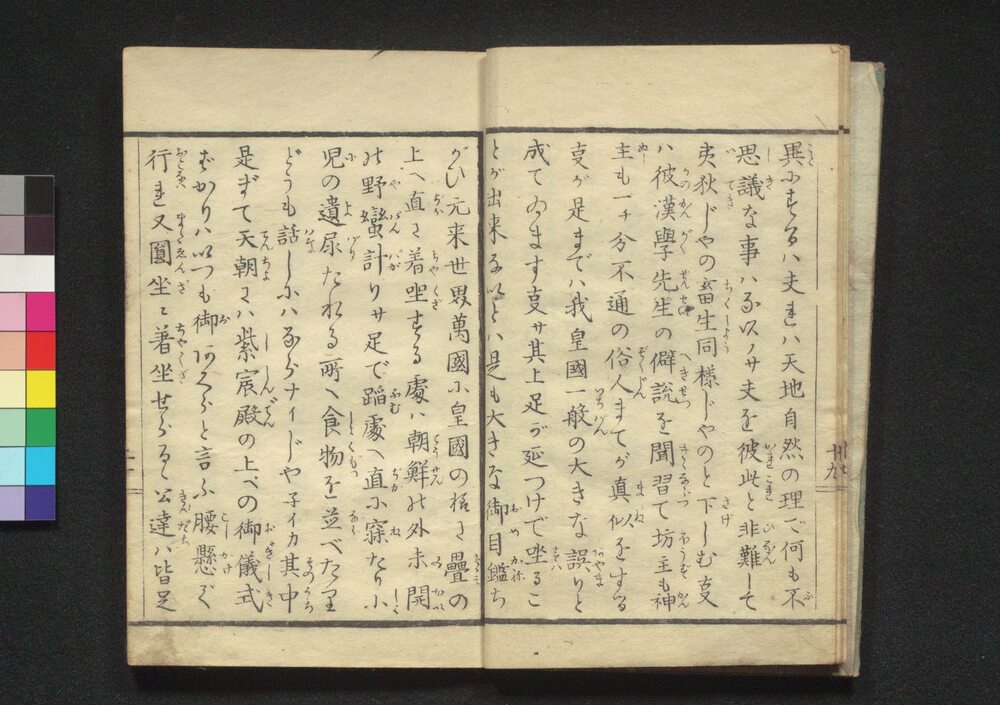 異にするハ夫ハ天地自然の理で何も不
思議な事ハないノサ夫を彼此と非難して
夷狄じやの畜生同様じやのと下しむ事
ハ彼漢學先生の僻説を聞習て坊主も神
主も一チ分不通の俗人までが真似をする
事が是までハ我皇國一般の大きな誤りと
成てゐます事サ其上足が延つけで坐るこ
とが出来ないとハ是も大きな御目鑑ち
がひ元来世界萬國に皇國の様に疊の
上へ直に着坐する處ハ朝鮮の外未開
の野蠻計りサ足で蹈處へ直に寐たり小
児の遺尿たれる所へ食物を並べたり
どうも話しにハならナイじや子イカ其中
是まで天朝にハ紫宸殿の上べの御儀式
ばかりハいつも御と言ふ腰懸で
行ハれ又圓坐に著坐せらるゝ公達ハ皆足